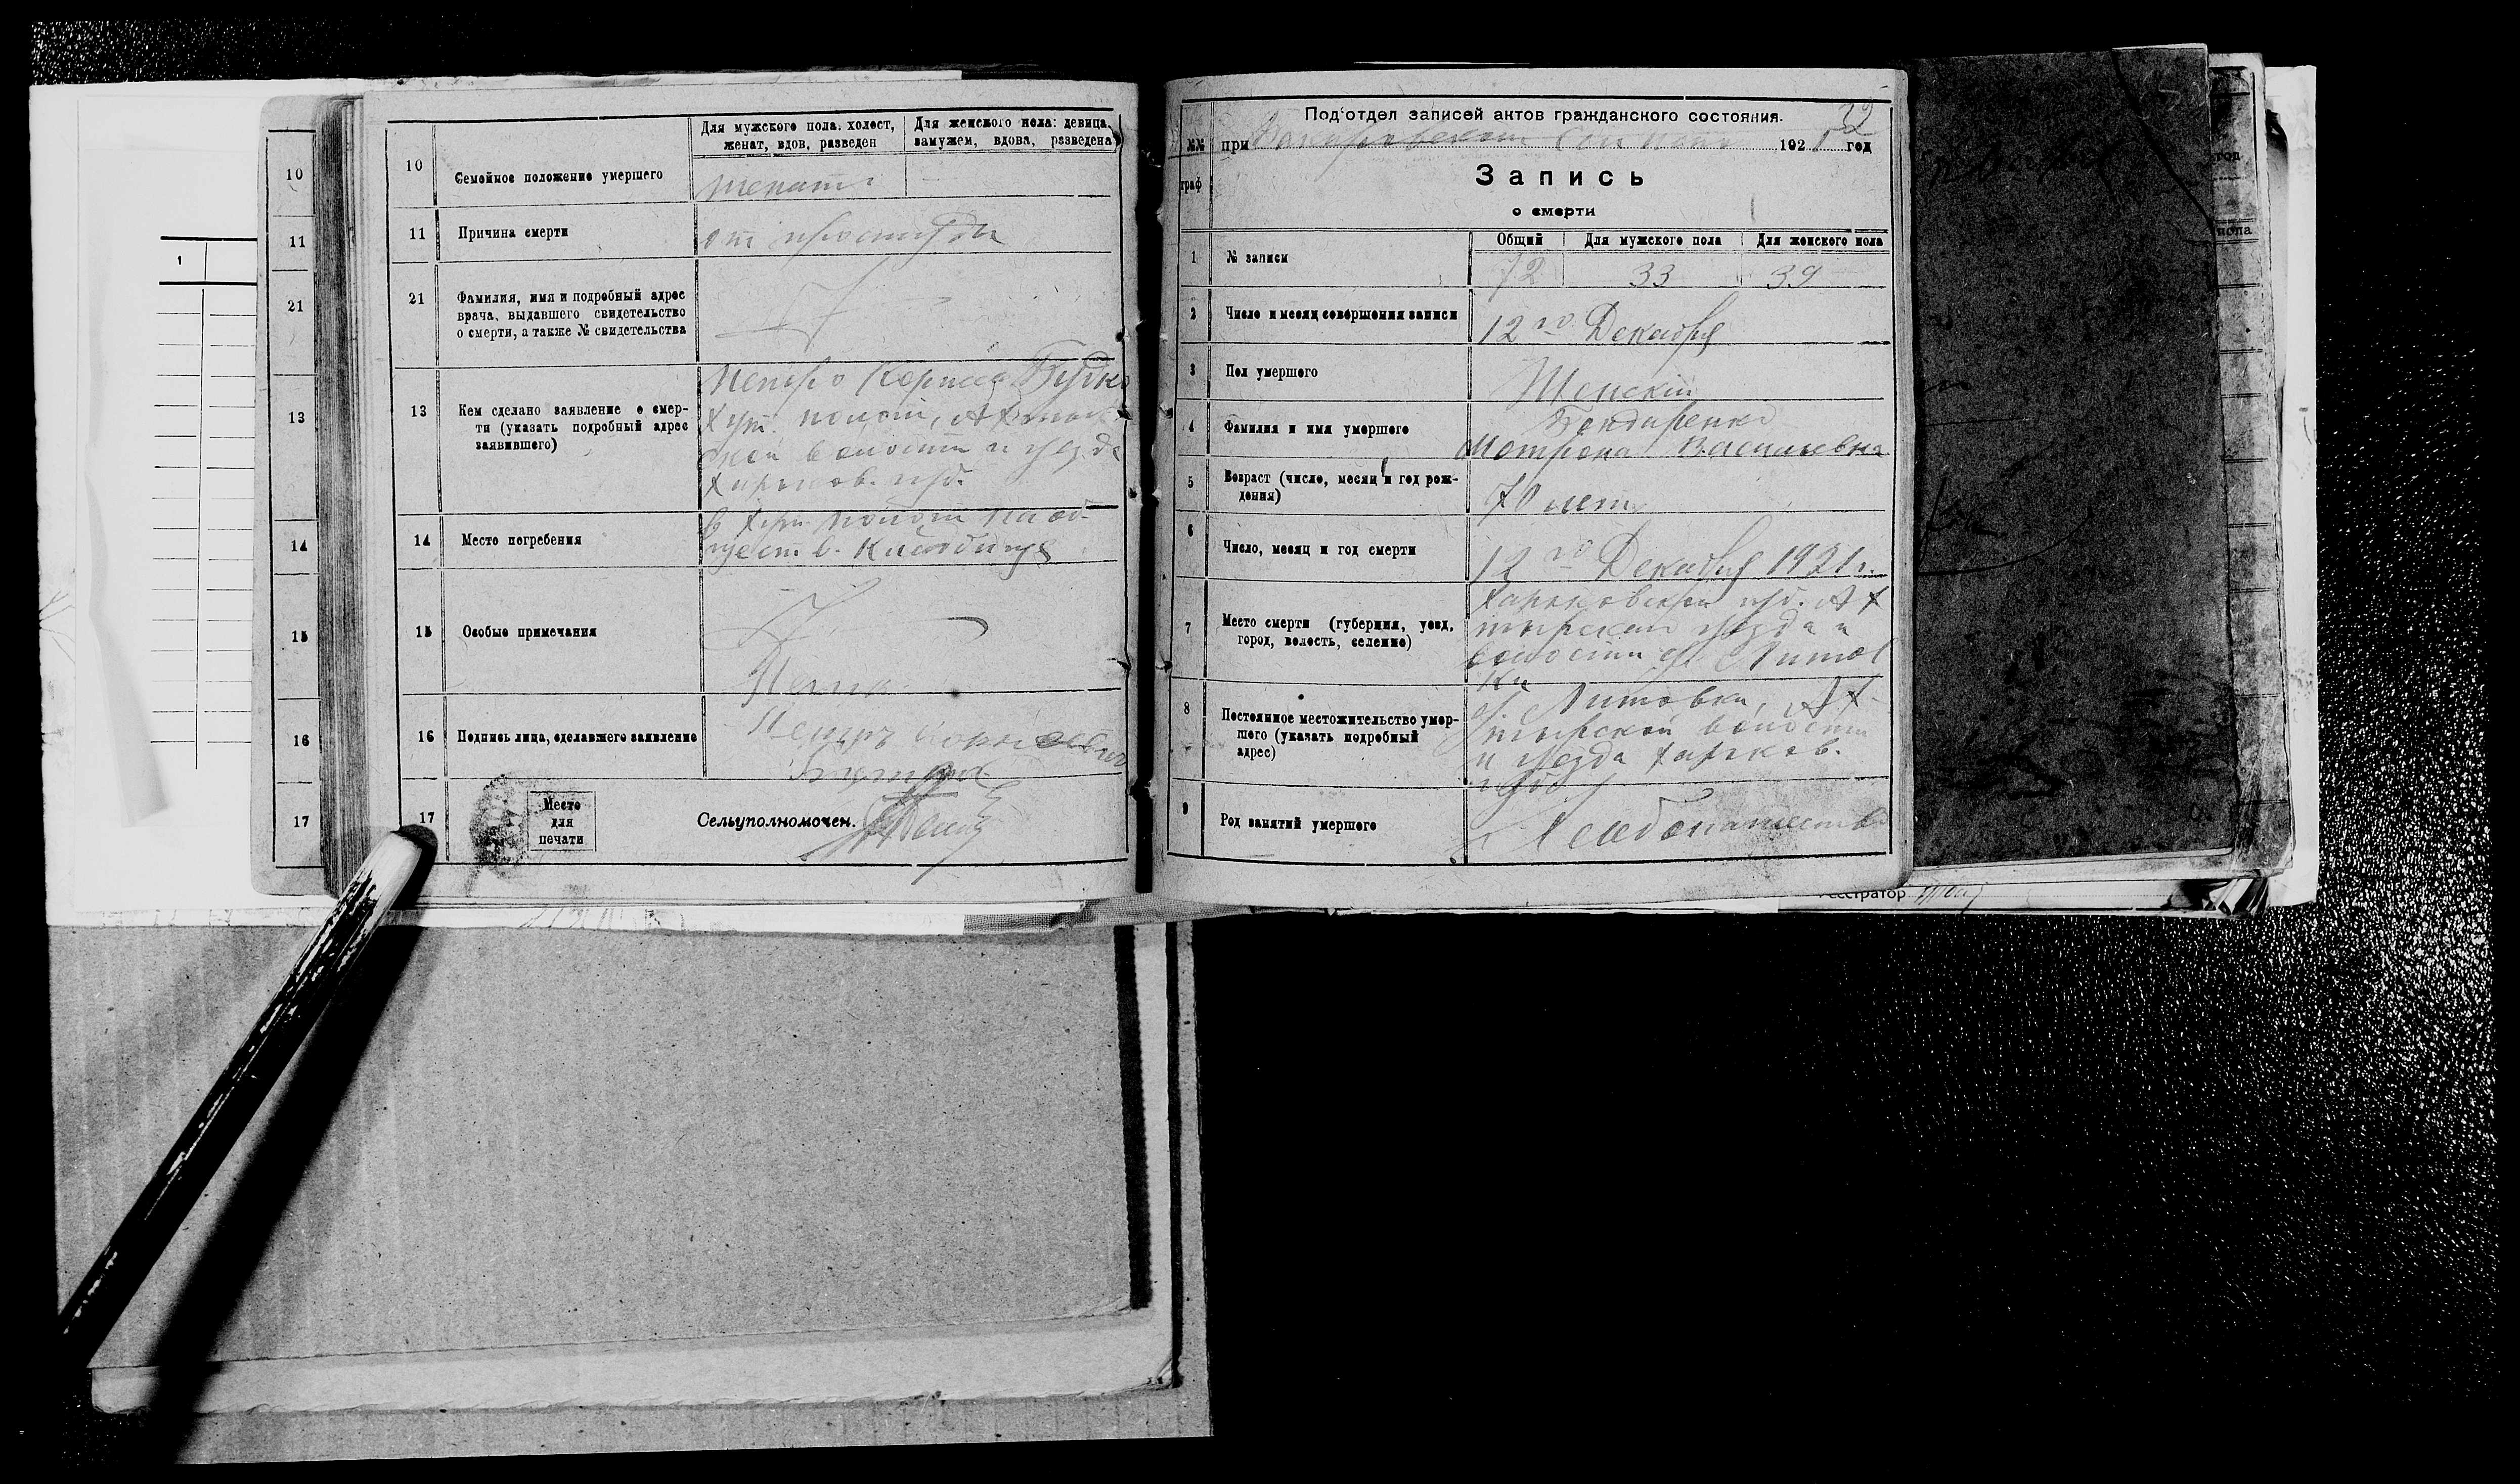 10
11
21
13
14
15
16
17
1
10
Семейное положение умершего
Для мужского пола. холост, женат, вдов, разведен
Для женского пола: девица, замужем, вдова, разведена
женат
11
Причина смерти
от простуды
21
Фамилия, имя и подробный адрес
врача, выдавшего свидетельство
о смерти, а также № свидетельства
13
Кем сделано заявление о смер-
ти (указать подробный адрес
заявившего)
Петро
Хут.
ской волости и уезда
Харьков. губ.
14
Место погребения
в хут. на об-
ществ. Кладбище
15
Особые примечания
16
Подпись лица, сделавшего заявление
17
Место
для
печати
Сельуполномочен.
32
Под'отдел записей актов гражданского состояния.
№№
граф
при 1921 год
Запись
о смерти
1
№ записи
Общий
Для мужского пола
Для женского пола
72
33
39
2
Число и месяц совершения записи
12го Декабря
3
Пол умершого
Женский
4
Фамилия и имя умершого
Бондаренко
Мотрона Васильевна
5
Возраст (число, месяц и год рож-
дения)
70 лет
6
Число, месяц и год смерти
12го Декабря 1921 г.
7
Место смерти (губерния, уезд,
город, волость, селение)
Харьковской губ. Ах
тырского уезда и
волости Литов
ки
8
Постоянное местожительство умер-
шого (указать подробный
адрес)
Литовки, Ах-
тырской волости
и уезда Харьков.
губ.
9
Род занятий умершого
Хлебопашество